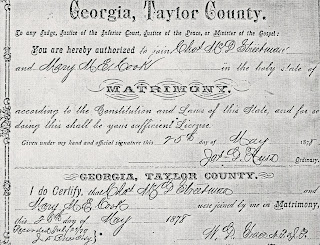 Georgia, Taylor County.
To any Judge, Justice of the Inferior Court, Justice of the Peace, or Minister of the Gospel:
You are hereby authorized to join Chas McD
and Mary M. E. Cook in the holy state of
MATRIMONY,
according to the Constitution and Laws of this State, and for so
doing this shall be your sufficient License.
Given under my hand and official signature this 25th day of May 1878
Jas. D. Russ Ordinary.
GEORGIA, TAYLOR COUNTY.
I do Certify, that Chas McD and
Mary M. E. Cook were joined by me in Matrimony,
this day of May 1878
Recorded
W. D.